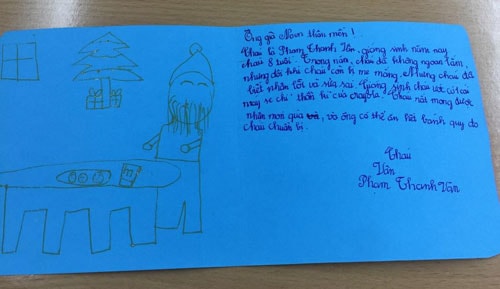 Ông già Noen thân mến!
Cháu là Phạm Thanh Vân, giáng sinh năm nay
cháu 8 tuổi. Trong năm, cháu đã không ngoan lắm,
nhưng đôi khi cháu còn bị mẹ mắng. Nhưng cháu đã
biết nhận lỗi và sửa sai. Giáng sinh cháu ước có 1 cái
máy se chỉ thần kì của crayola. Cháu rất mong được
nhận món quà và, và ông có thể ăn hết bánh quy do
cháu chuẩn bị.
Cháu
Vân
Phạm Thanh Vân